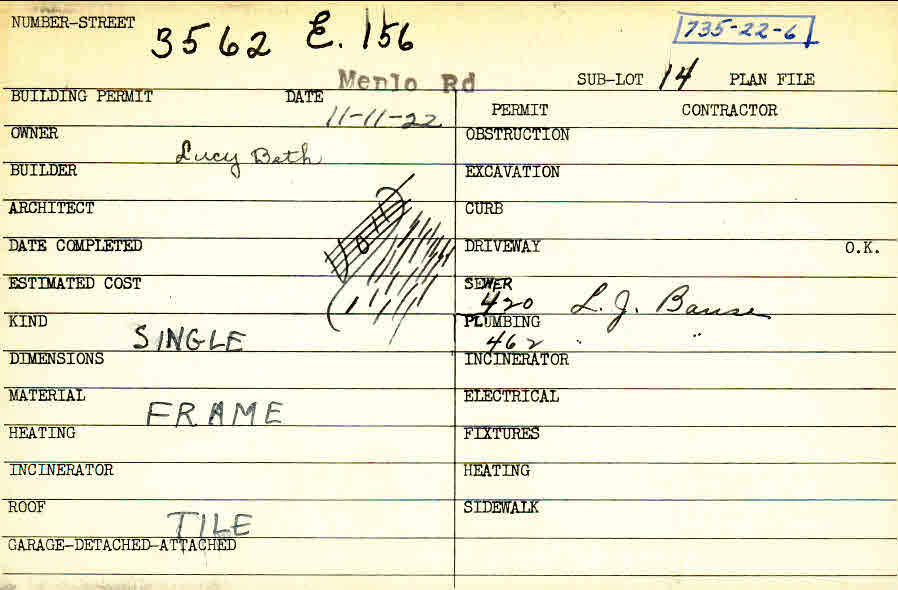 NUMBER-STREET 3562 E. 156 735-22-6
Menlo Rd SUB-LOT 14 PLAN FILE
BUILDING PERMIT DATE 11-11-22 PERMIT CONTRACTOR
OWNER Lucy Beth OBSTRUCTION
BUILDER EXCAVATION
ARCHITECT CURB
DATE COMPLETED DRIVEWAY O.K.
ESTIMATED COST SEWER 420 L. J. Bause
KIND SINGLE PLUMBING 462 " "
DIMENSIONS INCINERATOR
MATERIAL FRAME ELECTRICAL
HEATING FIXTURES
INCINERATOR HEATING
ROOF TILE SIDEWALK
GARAGE-DETACHED-ATTACHED